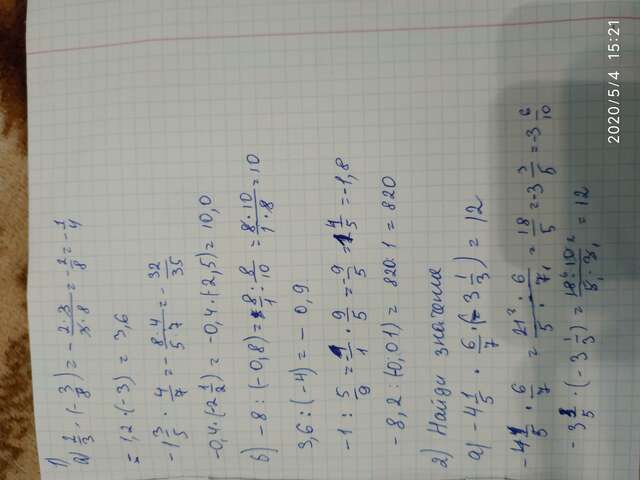 1)
а) 2/3 · (-3/8) = -2·3/3·8 = -2/8 = -1/4
= 1,2 · (-3) = 3,6
-1 3/5 · 4/7 = -8·4/5 7 = -32/35
-0,4·(-2 1/2) = -0,4·(-2,5) = 10,0
б) -8 : (-0,8) = 8/1 : 8/10 = 8·10/1·8 = 10
3,6 : (-4) = -0,9
-1 : 5/9 = -1/1 · 9/5 = -9/5 = 1 4/5 = -1,8
-8,2 : (0,01) = 820:1 = 820
2) Найди значения
а) -4 1/5 · 6/7 · (-3 1/3) = 12
-4 1/5 · 6/7 = 21³ · 6/5 · 7₁ = 18/5 = -3 3/5 = -3 6/10
-3 3/5 · (-3 1/3) = 18⁶ · 10²/5₁ · 3₁ = 12
2020/5/4 15:21